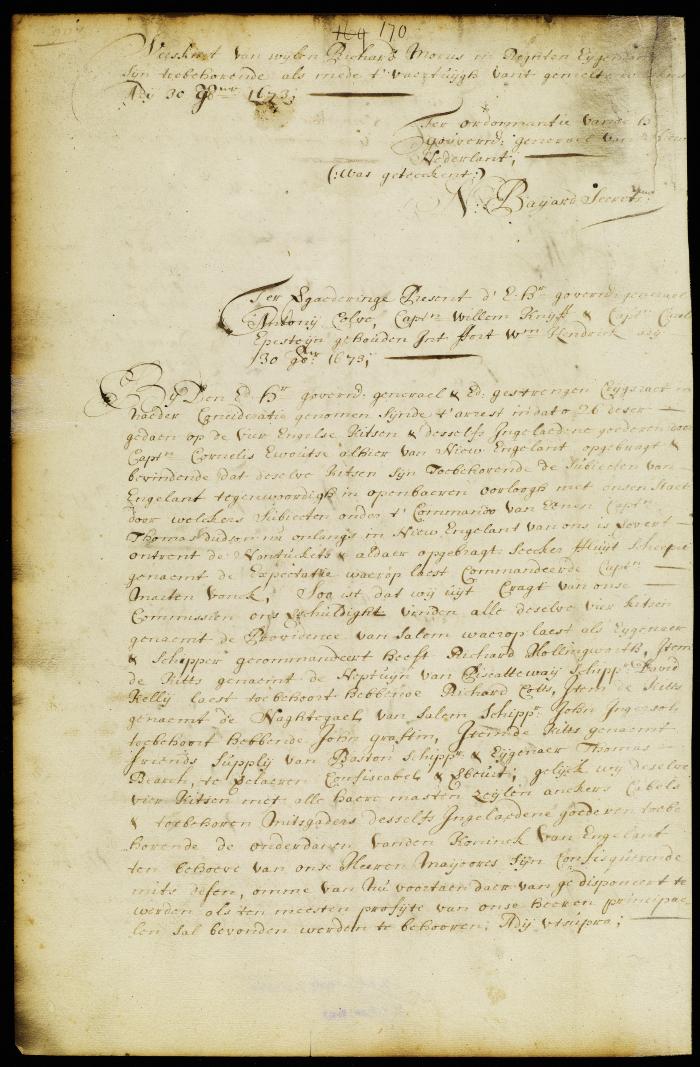 169 170
van wylen Richard Morris
Sijn toebehorende als mede t' vaertuijgh vant gemelte
Adij 30 8ber 1673;
Ter ordonnantie van
gouvernr: generael van
Nederlant;
(:Was geteeckent:)
N: Bayard Secrets:
Ter Vgaederinge Present d' E: Hr gouvernr generael
Antonij Colve, Captn Willem Knijff & Captn
Epesteijn gehouden Int ffort Wm Hendrick adij
30 8ber 1673;
By Den Ed: Hr gouvernr: generael & Ed: gestrengen
naeder Consideratie genomen Sijnde t' arrest in dato 26 deser
gedaen op de vier Engelse kitsen & desselfs Ingelaedene goederen door
Captn Cornelis Ewoutse alhier van Niew Engelant opgebragt &
bevindende dat deselve kitsen Sijn toebehorende de Subiecten van
Engelant tegenwoordigh in openbaeren oorloogh met onsen Staet
door welckers Subiecten onder t' Commando van Eenen Captn
Thomas Dudson nu onlangs in Niew Engelant van ons is verovert
ontrent de Nantuckets & aldaer opgebragt Seecker ffluijt Scheepie
genaemt de Expectatie waerop laest Commandeerde Captn
Marten Vonck, Soo ist dat wij uijt Cragt van onse
Commissien ons Vschuldight vinden alle deselve vier kitsen
genaemt de Providence van Salem waerop laest als Eygenaer
& Schipper gecommandeert heeft Richard Hollingwortk, Item
de kitts genaemt de Neptuijn van Piscatteway Schippr David
Kelly laest toebehoort hebbende Richard Cotts, Item de kitts
genaemt de Naghtegael van Salem Schippr: John Ingerson
toebehoort hebbende John Graftin, Item de kitts genaemt
ffriends Supply van Baston Schippr & Eygenaer Thomas
Beard, te Vclaeren Confiscabel & Vbeurt; gelijck wij deselve
vier kitsen met alle haere masten Zeylen anckers Cabels
& toebehoren mitsgaders desselfs Ingelaedene goederen toebe
horende de onderdanen vanden Koninck van Engelant
ten behoeve van onse Heeren Mayoores Sijn Confisquerende
mits desen, omme van nu voortaen daer van gedisponeert te
werden als ten meesten profijte van onse heeren principae-
len sal bevonden werden te behooren; Adij utsupra;